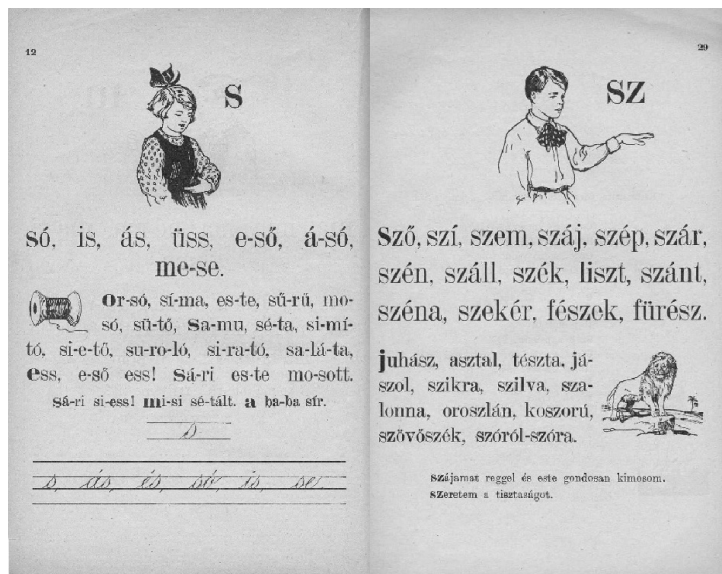 12
s
só, is, ás, üss, e-ső, á-só,
me-se.
Or-só, sí-ma, es-te, sű-rű, mo-
só, sü-tő, Sa-mu, sé-ta, si-mí-
tó, si-e-tő, su-ro-ló, si-ra-tó, sa-lá-ta,
ess, e-ső ess! Sá-ri es-te mo-sott.
Sá-ri si-ess! mi-si sé-tált. a ba-ba sír.
s
s, ás, és, só, is, se
29
sz
Sző, szí, szem, száj, szép, szár,
szén, száll, szék, liszt, szánt,
széna, szekér, fészek, fűrész.
juhász, asztal, tészta, já-
szol, szikra, szilva, sza-
lonna, oroszlán, koszorú,
szövőszék, szóról-szóra.
Szájamat reggel és este gondosan kimosom.
Szeretem a tisztaságot.